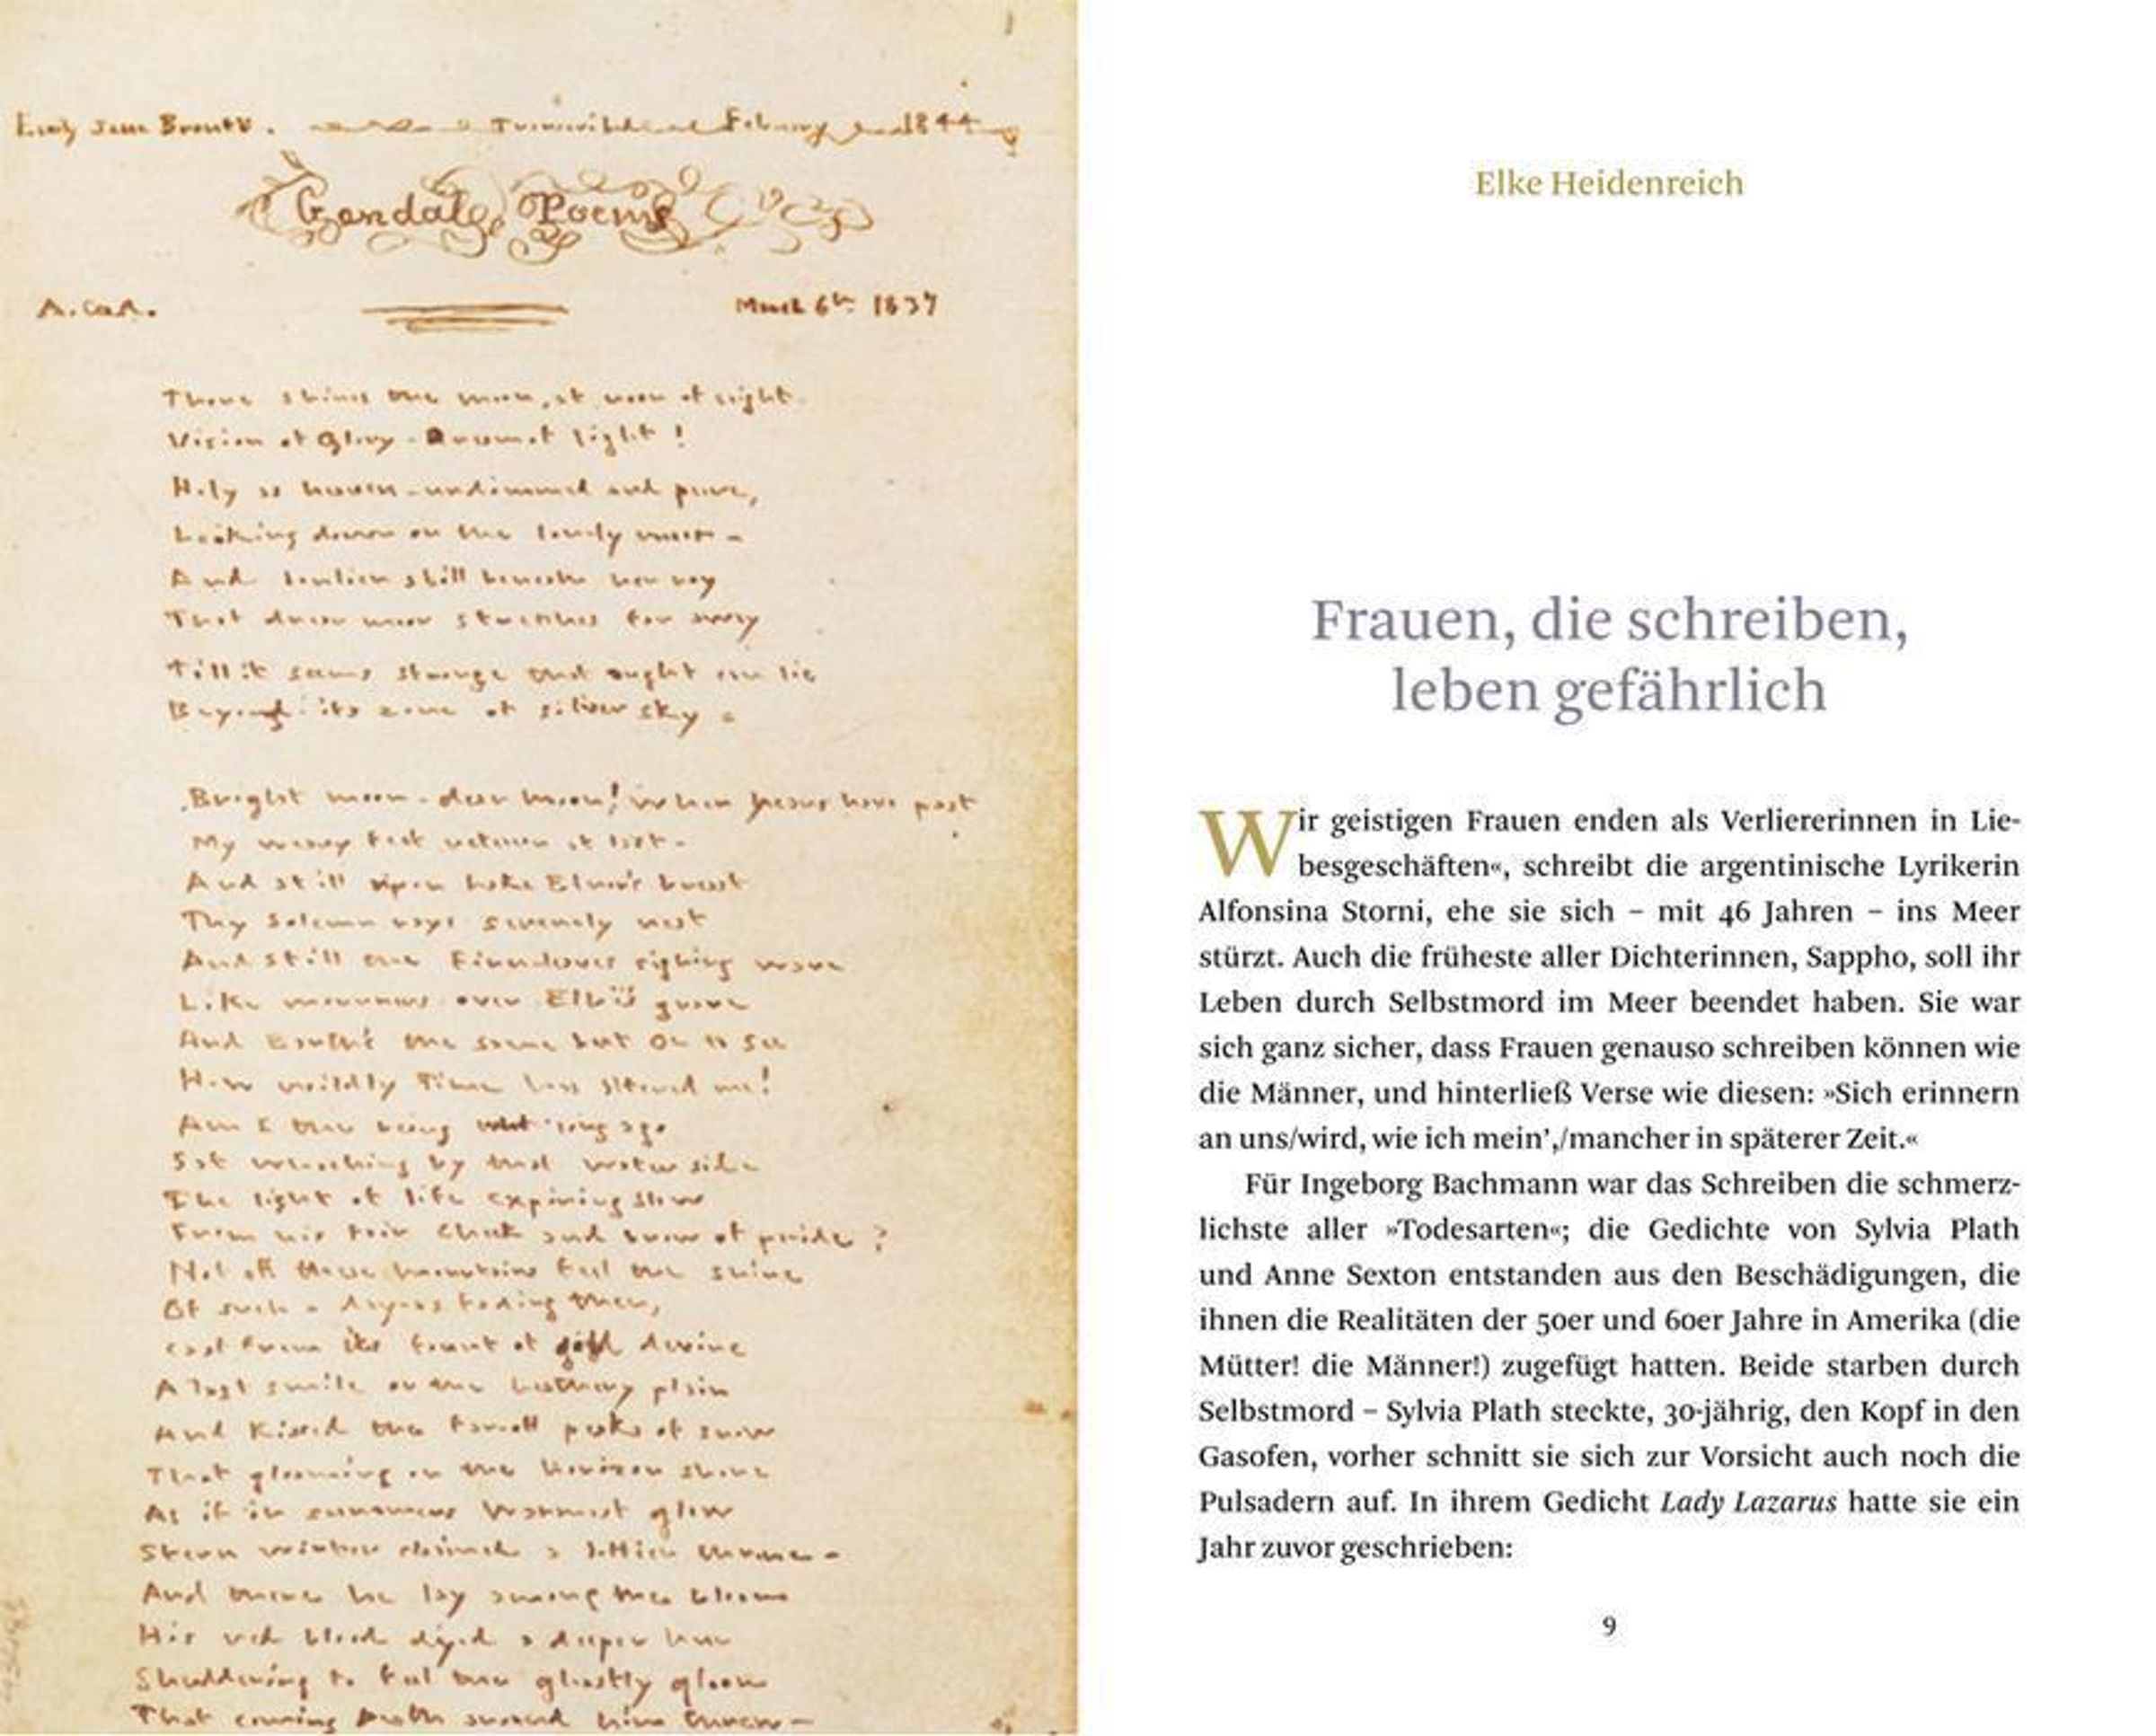 Emily Jane Brontë. Transcribed February 1844
Gondal Poems
A.G.A. March 6th 1837
There shines the moon, at noon of night
Vision of Glory - Dream of light!
Holy as heaven - undimmed and pure,
Looking down on the lonely moor -
And lonlier still beneath her ray
That drear moor stretches far away
Till it seems strange that aught can lie
Beyond its zone of silver sky -
Bright moon - dear moon! when years have past
My weary feet return at last -
And still upon Lake Elnor's breast
Thy solemn rays serenely rest
And still the Fern-leaves sighing wave
Like mourners over Elbë's grave
And Earth's the same but Oh to see
How wildly Time has altered me!
Am I the being who long ago
Sat watching by that water side
The light of life expiring slow
From his fair cheek and brow of pride?
Not oft these mountains feel the shine
Of such a day as fading then,
Cast from its fount of gold devine
A last smile on the heathery plain
And kissed the far-off peaks of snow
That gleaming on the horizon shone
As if in summer's warmest glow
Stern winter claimed a loftier throne -
And there he lay among the bloom
His red blood dyed a deeper hue
Shuddering to feel the ghastly gloom
That coming Death around him threw -
Elke Heidenreich
Frauen, die schreiben,
leben gefährlich
Wir geistigen Frauen enden als Verliererinnen in Lie-
besgeschäften«, schreibt die argentinische Lyrikerin
Alfonsina Storni, ehe sie sich – mit 46 Jahren – ins Meer
stürzt. Auch die früheste aller Dichterinnen, Sappho, soll ihr
Leben durch Selbstmord im Meer beendet haben. Sie war
sich ganz sicher, dass Frauen genauso schreiben können wie
die Männer, und hinterließ Verse wie diesen: »Sich erinnern
an uns/wird, wie ich mein’,/mancher in späterer Zeit.«
Für Ingeborg Bachmann war das Schreiben die schmerz-
lichste aller »Todesarten«; die Gedichte von Sylvia Plath
und Anne Sexton entstanden aus den Beschädigungen, die
ihnen die Realitäten der 50er und 60er Jahre in Amerika (die
Mütter! die Männer!) zugefügt hatten. Beide starben durch
Selbstmord – Sylvia Plath steckte, 30-jährig, den Kopf in den
Gasofen, vorher schnitt sie sich zur Vorsicht auch noch die
Pulsadern auf. In ihrem Gedicht Lady Lazarus hatte sie ein
Jahr zuvor geschrieben:
9